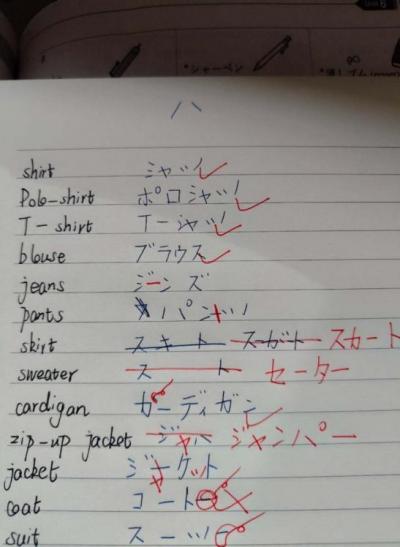 *シャーペン
ハ
shirt シャツ
Polo-shirt ポロシャツ
T-shirt T-シャツ
blouse ブラウス
jeans ジーンズ
pants パンツ
skirt スキート スガート スカート
sweater ス ト セーター
cardigan カーディガン
zip-up jacket ジャパ ジャンパー
jacket ジャケット
coat コート
suit スーツ